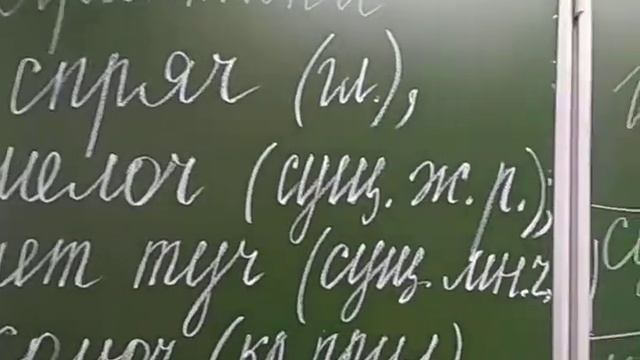 спряч (гл.),
мелоч (сущ. ж.р.),
нет туч (сущ. мн.ч.
(кр. прил.)